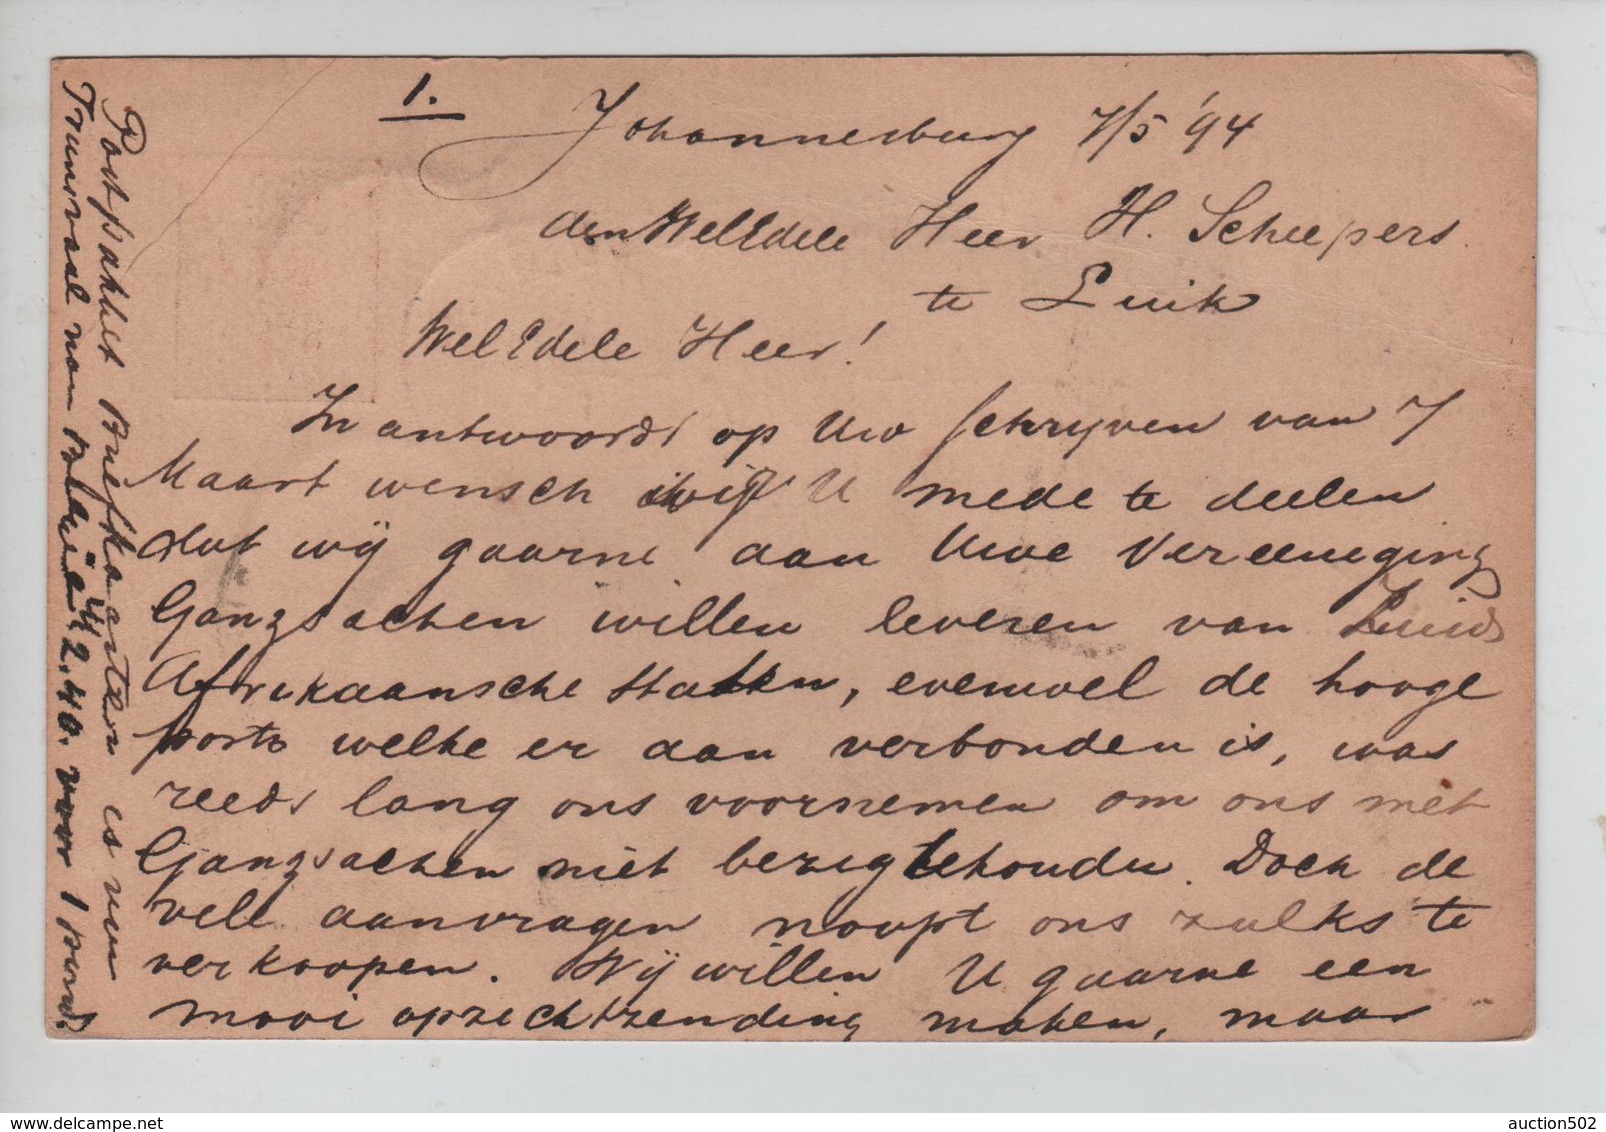 1.
Johannesburg 7/5 '94
den WelEdele Heer H. Scheepers.
te Luik
WelEdele Heer!
In antwoordt op Uw schryven van 7
Maart wensch wij U mede te deelen
dat wij gaarne aan Uwe Vereeniging
Ganzsachen willen leveren van Zuid
Afrikaansche Staten, evenwel de hooge
porto welke er aan verbonden is, was
reeds lang ons voornemen om ons met
Ganzsachen niet bezig te houden. Doch de
vele aanvragen noopt ons zulks te
verkoopen. Wij willen U gaarne een
mooi opzichtzending maken, maar
Postpakket Briefkaarten is van
Transvaal naar België f 2.40. voor 1 pond.
auction502